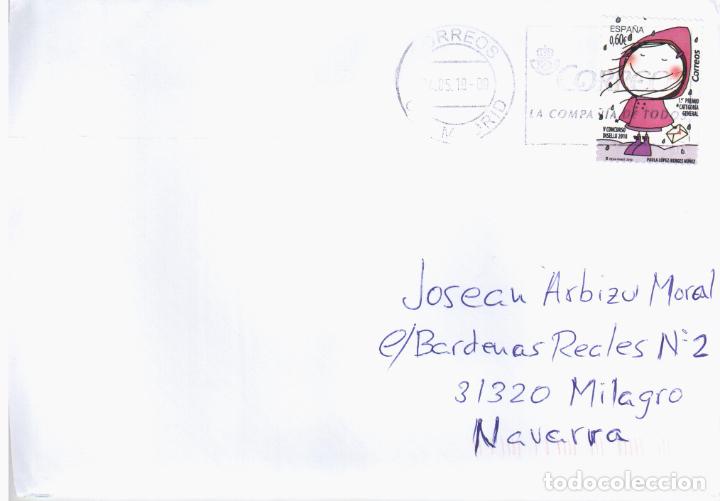 CORREOS
4.05.19-00
MADRID
CORREOS
LA COMPAÑIA DE TODOS
ESPAÑA
0,60€
Correos
1er PREMIO
CATEGORÍA
GENERAL
V CONCURSO
DISELLO 2018
PAULA LÓPEZ-BERGES NÚÑEZ
Josean Arbizu Moral
c/Bardenas Reales Nº2
31320 Milagro
Navarra
todocoleccion